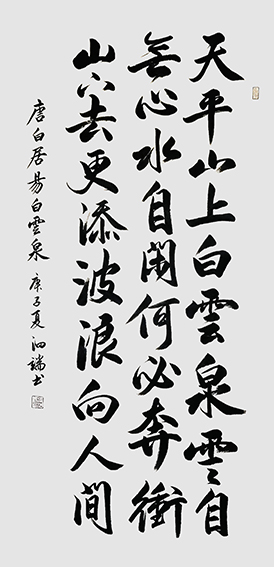 天平山上白雲泉雲自
無心水自閑何必奔衝
山下去更添波浪向人間
唐白居易白雲泉 庚子夏 泗端书